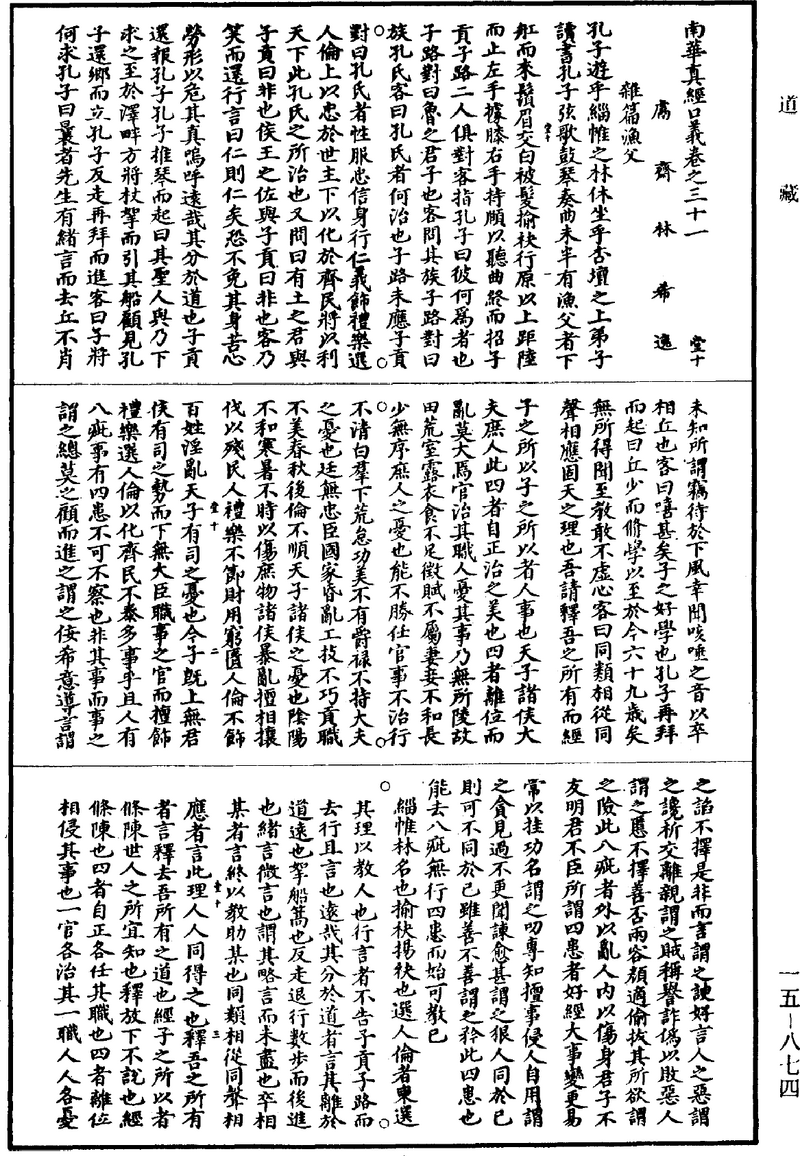 道藏
南華真經口義卷之三十一
堂十
鬳齋林希逸
雜篇漁父
孔子遊乎緇帷之林休坐乎杏壇之上弟子
讀書孔子弦歌鼓琴奏曲未半有漁父者下
舡而來鬚眉交白被髮揄袂行原以上距陸
而止左手據膝右手持頤以聽曲終而招子
貢子路二人俱對客指孔子曰彼何為者也
子路對曰魯之君子也客問其族子路對曰
族孔氏客曰孔氏者何治也子路未應子貢
對曰孔氏者性服忠信身行仁義飾禮樂選
人倫上以忠於世主下以化於齊民將以利
天下此孔氏之所治也又問曰有土之君與
子貢曰非也侯王之佐與子貢曰非也客乃
笑而還行言曰仁則仁矣恐不免其身苦心
勞形以危其真嗚呼遠哉其分於道也子貢
還報孔子孔子推琴而起曰其聖人與乃下
求之至於澤畔方將杖挐而引其船顧見孔
子還鄉而立孔子反走再拜而進客曰子將
何求孔子曰曩者先生有緒言而去丘不肖
未知所謂竊待於下風幸聞咳唾之音以卒
相丘也客曰嘻甚矣子之好學也孔子再拜
而起曰丘少而脩學以至於今六十九歲矣
無所得聞至教敢不虛心客曰同類相從同
聲相應固天之理也吾請釋吾之所有而經
子之所以子之所以者人事也天子諸侯大
夫庶人此四者自正治之美也四者離位而
亂莫大焉官治其職人憂其事乃無所陵故
田荒室露衣食不足徵賦不屬妻妾不和長
少無序庶人之憂也能不勝任官事不治行
不清白羣下荒怠功美不有爵祿不持大夫
之憂也廷無忠臣國家昏亂工技不巧貢職
不美春秋後倫不順天子諸侯之憂也陰陽
不和寒暑不時以傷庶物諸侯暴亂擅相攘
伐以殘民人禮樂不節財用窮匱人倫不飭
堂十
二
百姓淫亂天子有司之憂也今子既上無君
侯有司之勢而下無大臣職事之官而擅飾
禮樂選人倫以化齊民不泰多事乎且人有
八疵事有四患不可不察也非其事而事之
謂之總莫之顧而進之謂之佞希意導言謂
之諂不擇是非而言謂之諛好言人之惡謂
之讒析交離親謂之賊稱譽詐偽以敗惡人
謂之慝不擇善否兩容頰適偷拔其所欲謂
之險此八疵者外以亂人內以傷身君子不
友明君不臣所謂四患者好經大事變更易
常以挂功名謂之叨專知擅事侵人自用謂
之貪見過不更聞諫愈甚謂之狠人同於已
則可不同於已雖善不善謂之矜此四患也
能去八疵無行四患而始可教已
緇帷林名也揄袂揚袂也選人倫者東選
其理以教人也行言者不告子貢子路而
去行且言也遠哉其分於道者言其離於
道遠也挐船篙也反走退行數步而後進
也緒言微言也謂其略言而未盡也卒相
某者言終以教助某也同類相從同聲相
應者言此理人人同得之也釋吾之所有
堂十
三
者言釋去吾所有之道也經子之所以者
條陳世人之所宜知也釋放下不說也經
條陳也四者自正各任其職也四者離位
相侵其事也一官各治其一職人人各憂
一五—八七四